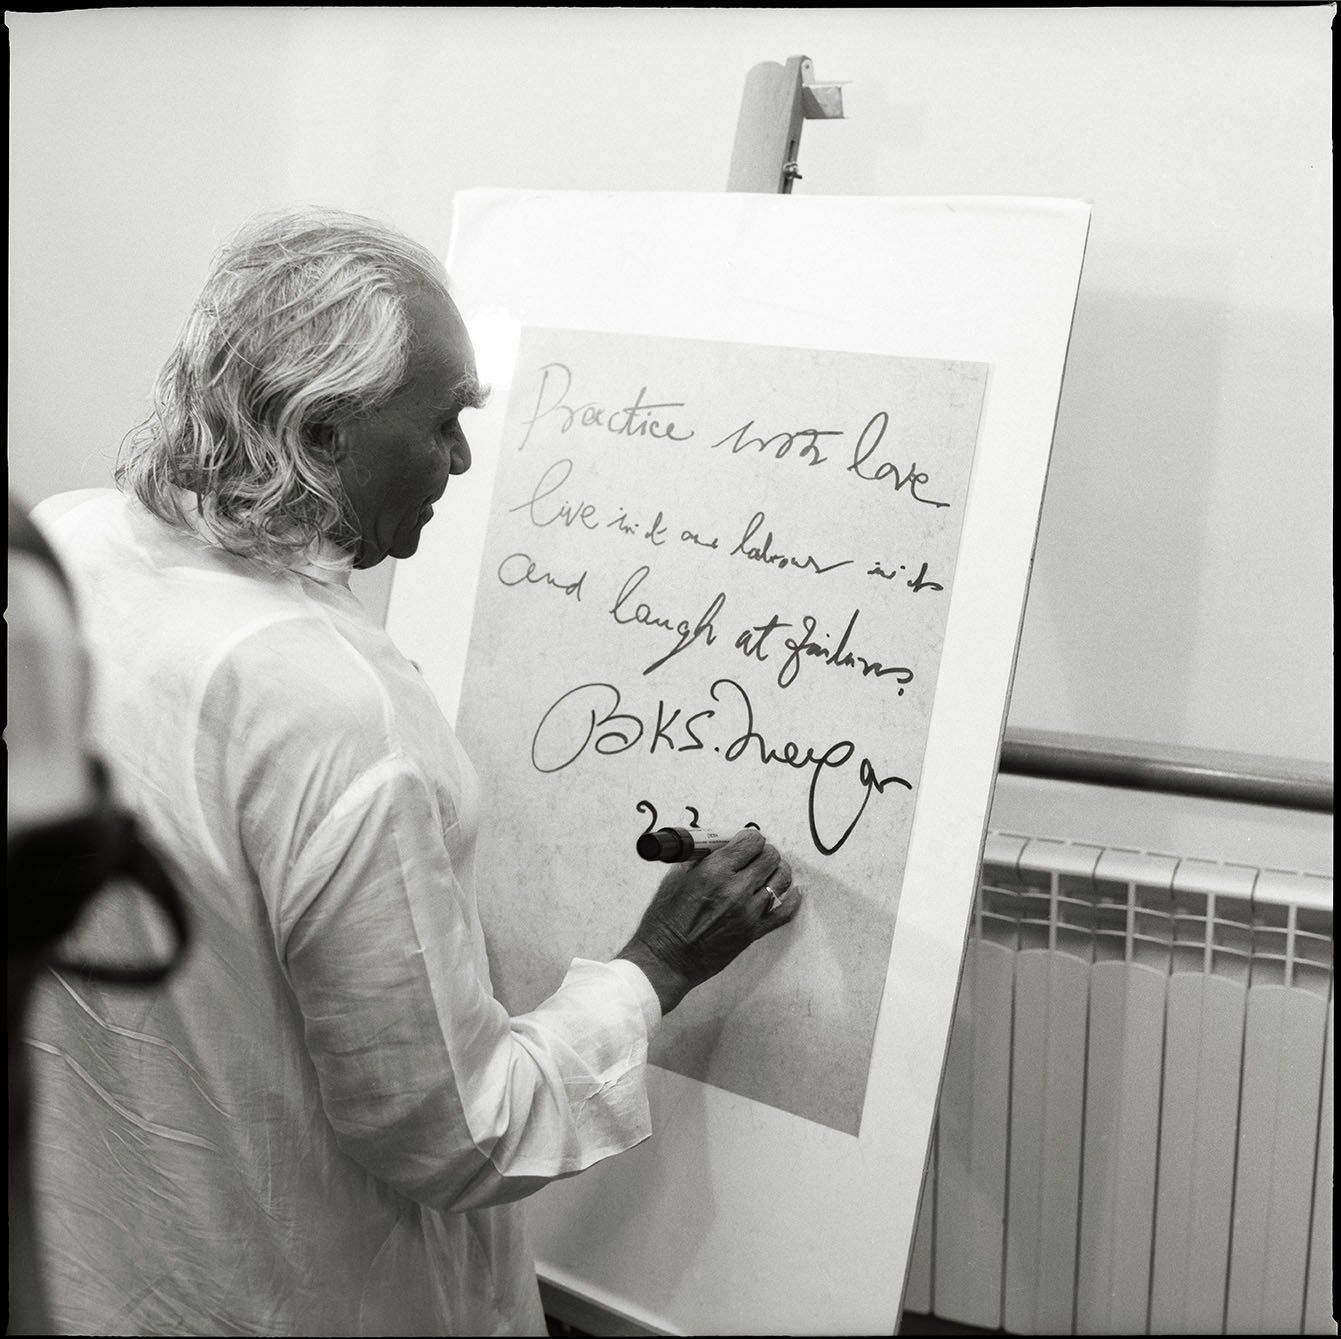 Practice with love
live in it and labour in it
and laugh at failures
BKS. Iyengar
2 3